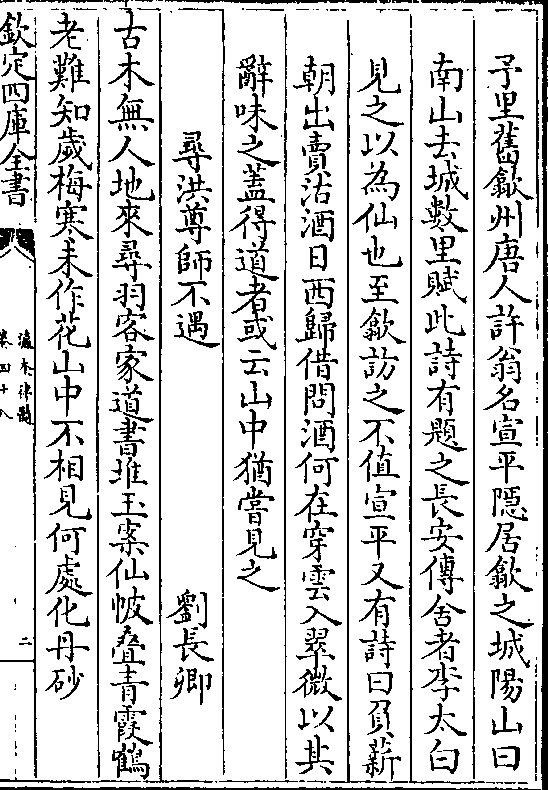 予里舊歙州唐人許翁名宣平隱居歙之城陽山曰
南山去城數里賦此詩有題之長安傳舍者李太白
見之以為仙也至歙訪之不值宣平又有詩曰負薪
朝出賣沽酒日西歸借問酒何在穿雲入翠微以其
辭味之蓋得道者或云山中猶嘗見之
尋洪尊師不遇　劉長卿
古木無人地來尋羽客家道書堆玉案仙帔疊青霞鶴
老難知歲梅寒未作花山中不相見何處化丹砂
欽定四庫全書
瀛奎律髓
卷四十八
二